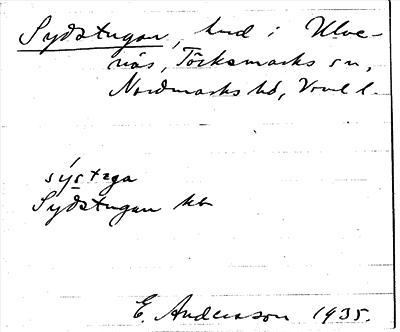 Sydstugan, hmd i Ulve-
näs, Töcksmarks sn,
Nordmarks hd, Vrml l.
sýstega
Sydstugan kb
E. Andersson 1935.